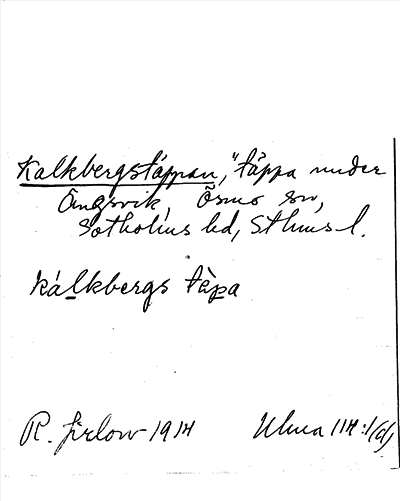 Kalkbergstäppan, "täppa under
Ängsvik, Ösmo sn,
Sotholms hd, Sthms l.
kálkbergs tàpa
R. Jirlow 1914
Ulma 114:1(d)